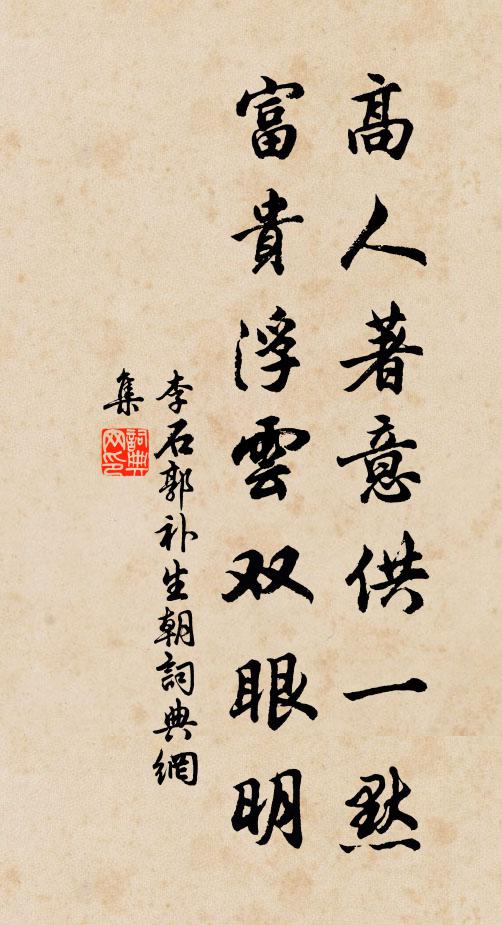 髙人著意供一默
富貴浮雲双眼明
李石郭补生朝詞典網
集
詞典
网印